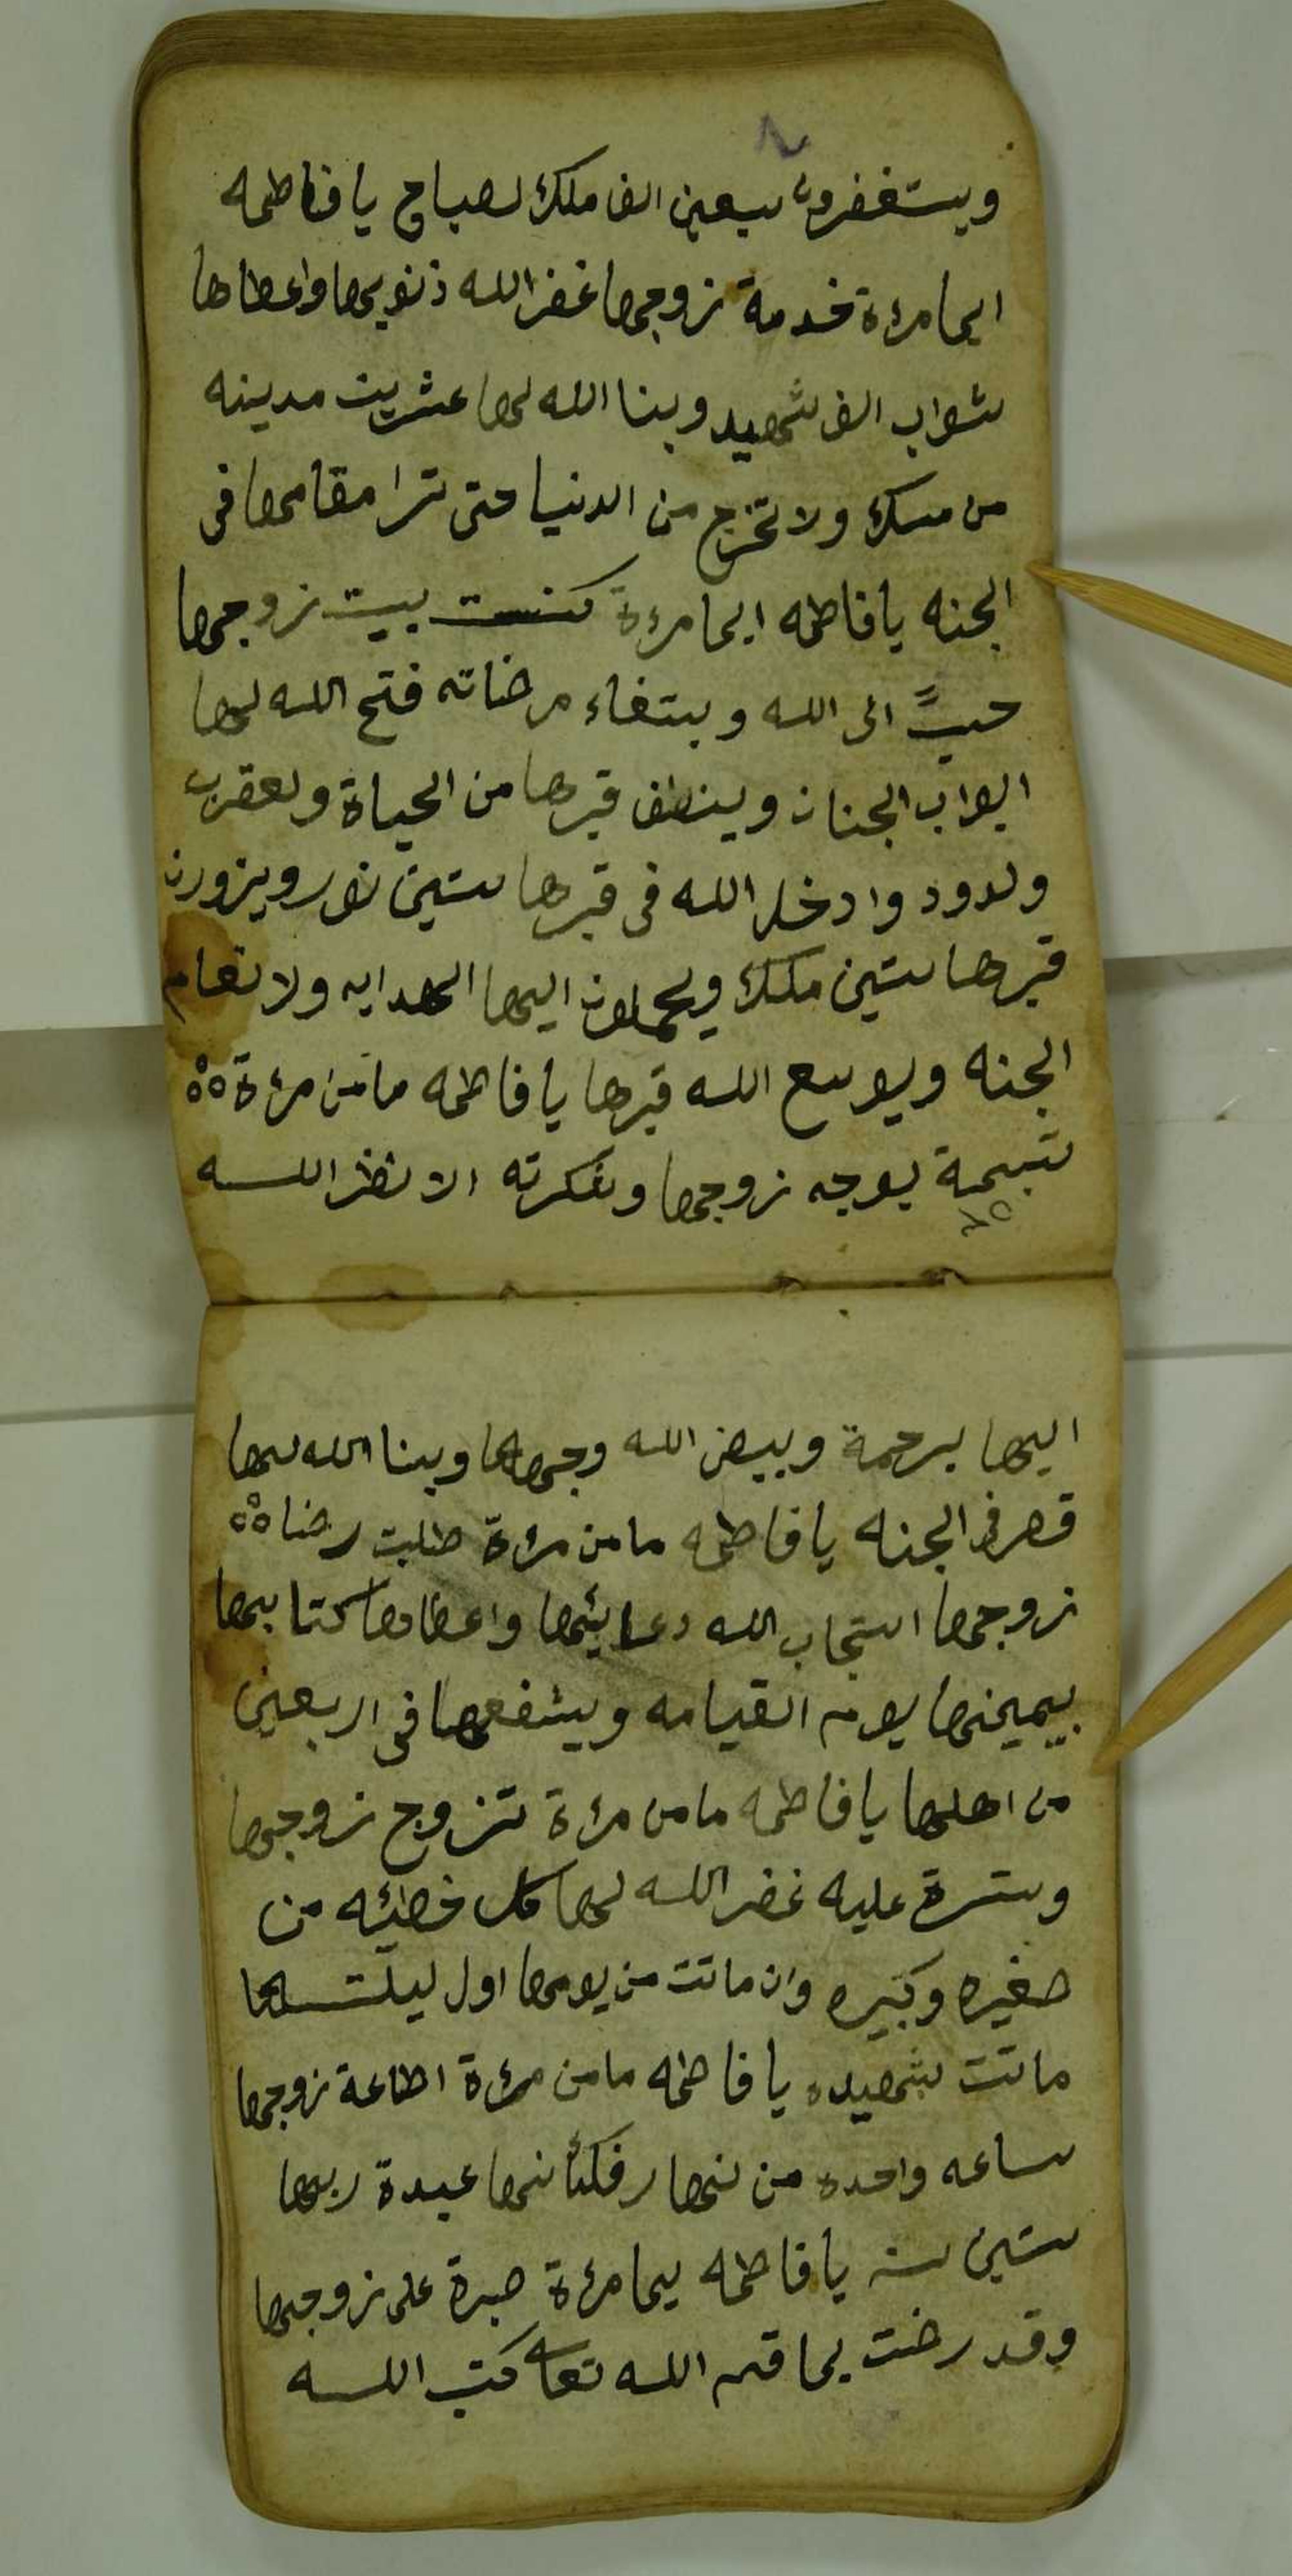 ويستغفرون سبعين الف ملك لصباح يا فاطمه
ايما مرءة خدمة زوجها غفر الله ذنوبها واعطاها
ثواب الف شهيد وبنا الله لها عشرين مدينه
من مسك ولا تخرج من الدنيا حتى ترا مقامها في
الجنه يا فاطمه ايما مرءة كنست بيت زوجها
حبً الى الله وبتغاء مرضاته فتح الله لها
ابواب الجنان وينظف قبرها من الحياة ولعقرب
ولدود وادخل الله في قبرها ستين نور ويزورن
قبرها ستين ملك ويحملون اليها الهدايه ولانعام
الجنه ويوسع الله قبرها يا فاطمه ما من مرءة
تبسمة بوجه زوجها وشكرته الا نظر الله
اليها برحمة وبيض الله وجهها وبنا الله لها
قصر في الجنه يا فاطمه ما من مرءة طلبت رضاه
زوجها استجاب الله دعائها واعطاها كتابها
بيمينها يوم القيامه ويشفعها في اربعين
من اهلها يا فاطمه ما من مرءة تزوج زوجها
وسترة عليه غفر الله لها كل خطيئه من
صغيره وكبيره وان ماتت من يومها اول ليلتها
ماتت شهيده يا فاطمه ما من مرءة اطاعة زوجها
ساعه واحده من نهار فكأنها عبدة ربها
ستين سنه يا فاطمه يما مرءة صبرة على زوجها
وقد رضت بما قسم الله تعا كتب الله